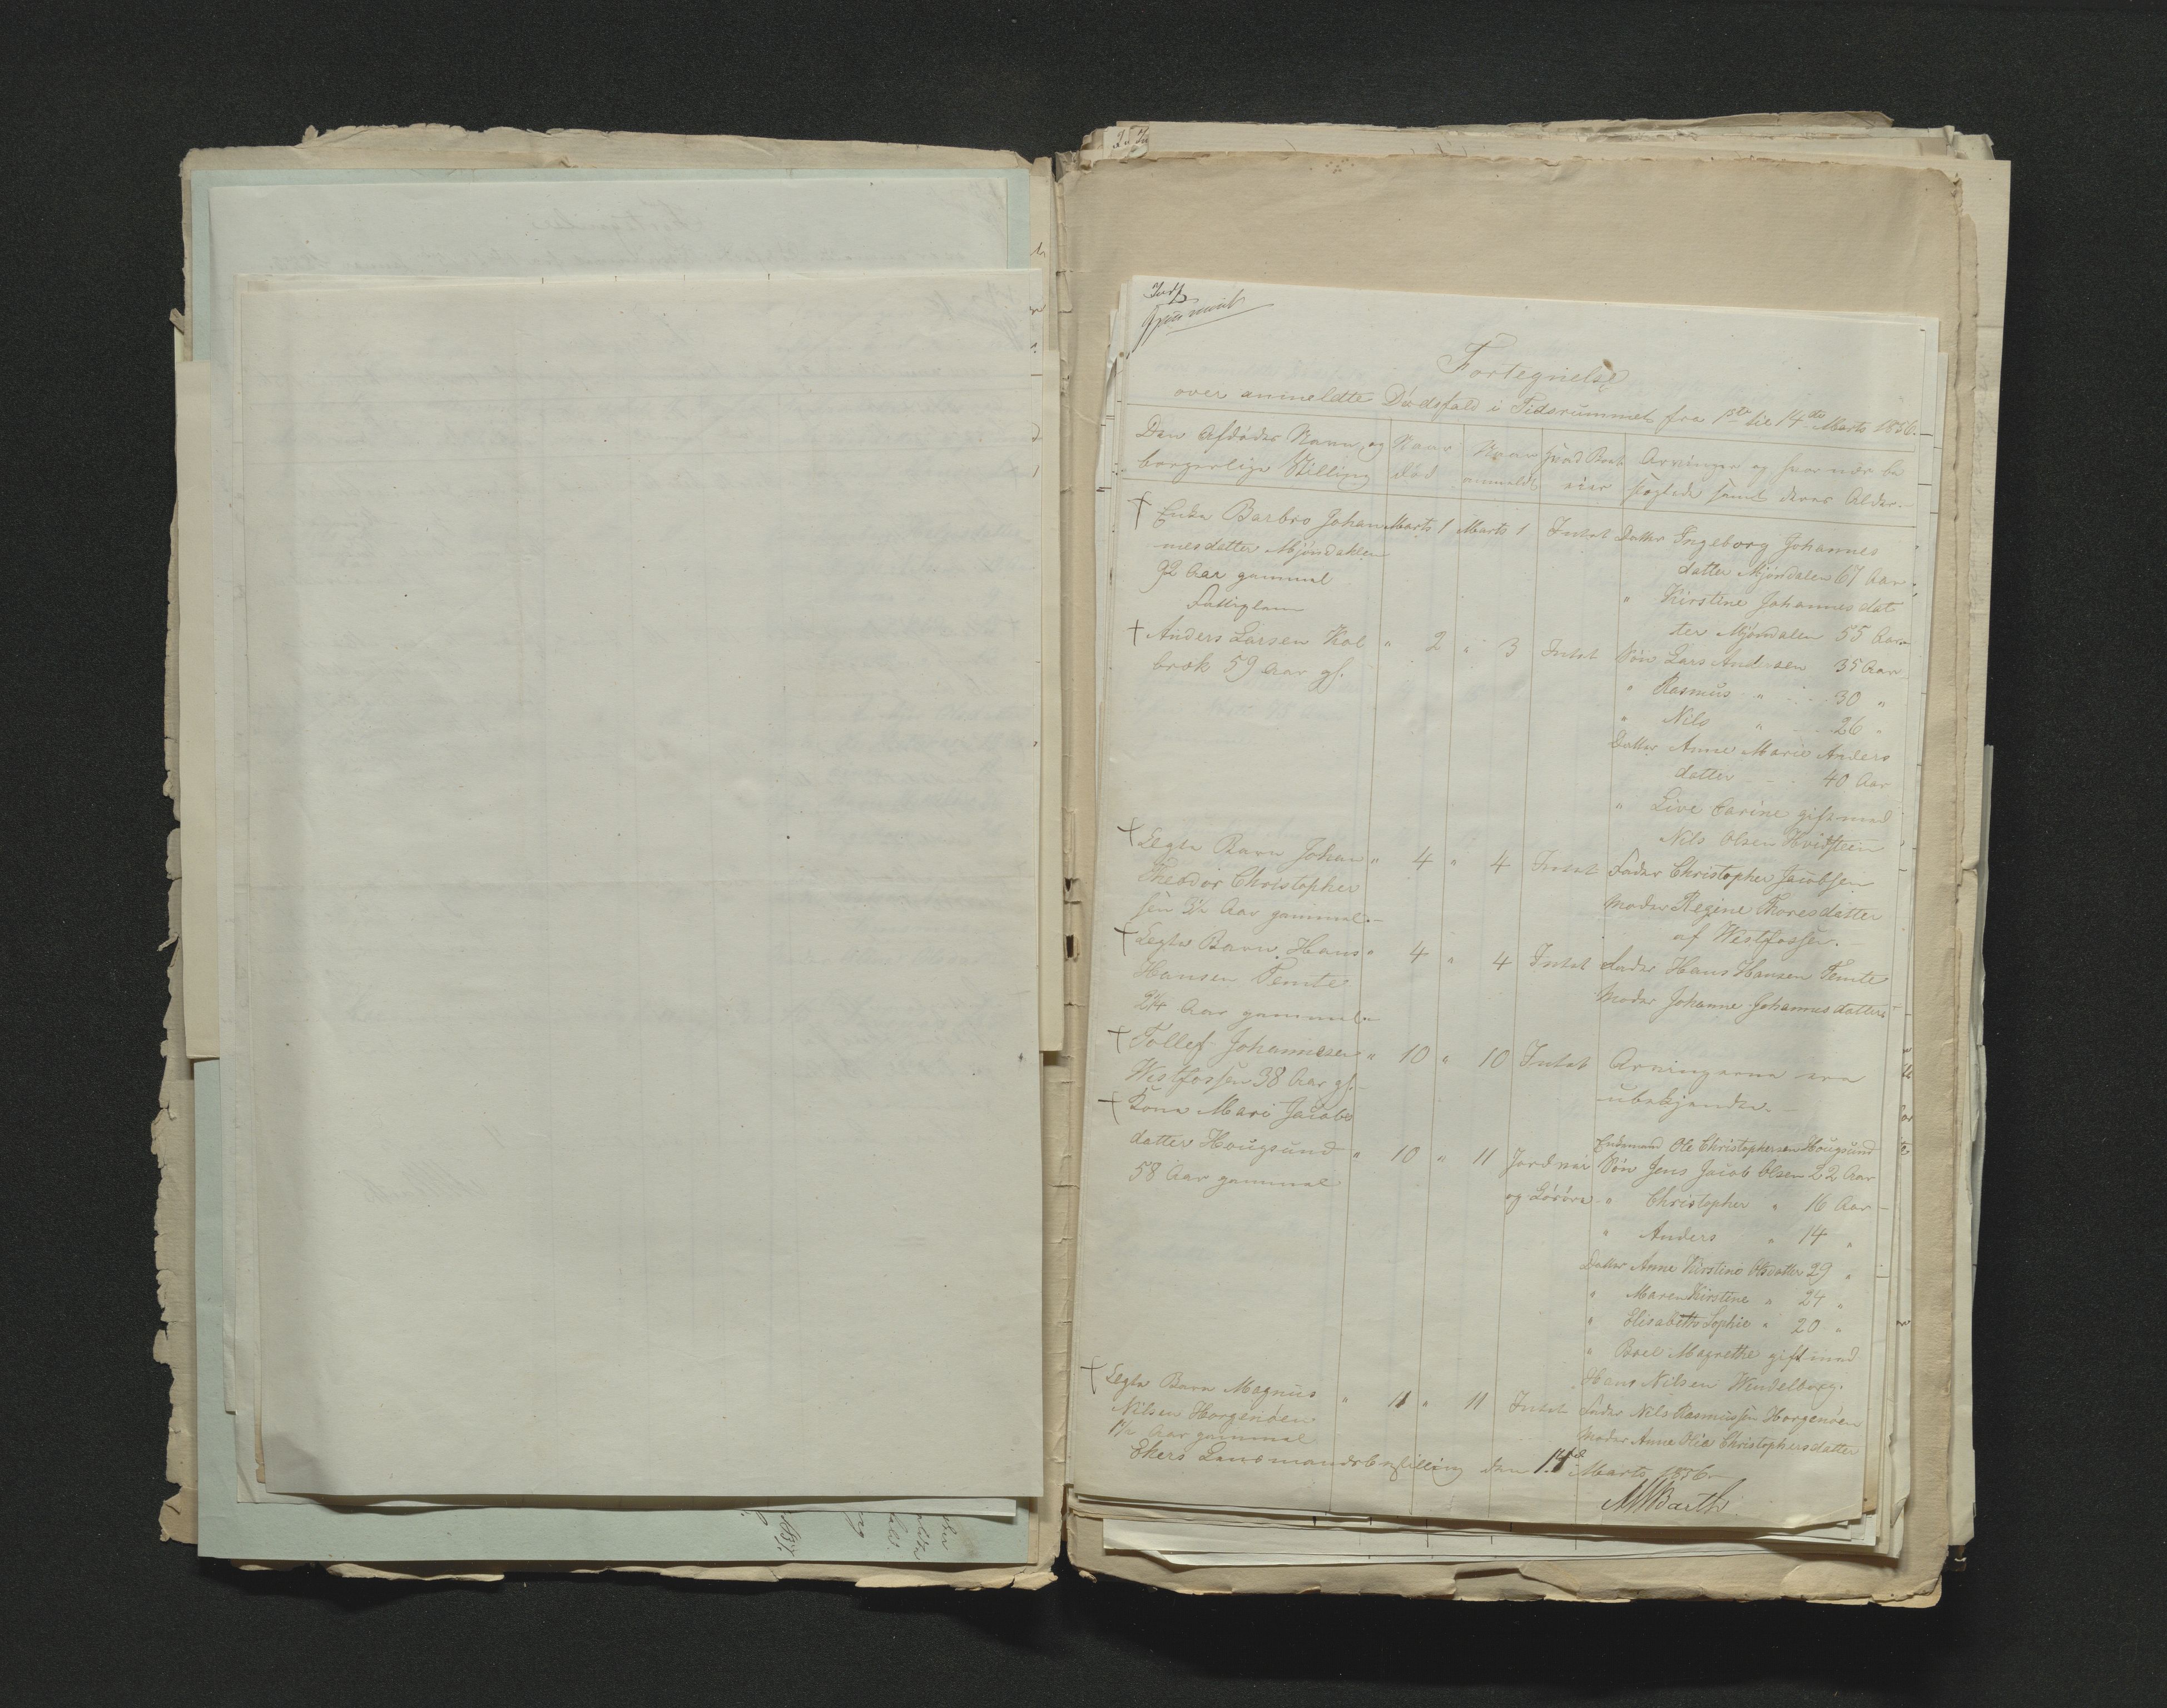 Indf
Journal
Fortegnelse
over anmeldte Dødsfald i Tidsrummet fra 1ste til 14de Marts 1856.
Den Afdødes Navn og borgerlige Stilling
Naar død
Naar anmeldt
Hvad Boet eier
Arvinger og hvor nær beslægtede samt deres Alder.
† Enke Barbro Johan Marts 1 Marts 1 Intet Datter Ingeborg Johannes
nesdatter Mjøndalen datter Mjøndalen 67 Aar
92 Aar gammel " Kirstine Johannesdat
Fattiglem ter Mjøndalen 55 Aar
† Anders Larsen Kol " 2 " 3 Intet Søn Lars Andersen 35 Aar
brek 59 Aar gl. " Rasmus " 30 "
" Nils " 26 "
Datter Anne Marie Anders
datter 40 Aar
" Live Carine gift med
Nils Olsen Hvidsteen
† Ægte Barn Johan " 4 " 4 Intet Fader Christopher Jacobsen
Theodor Christopher Moder Regine Thoresdatter
sen 3½ Aar gammel. af Westfossen.
† Ægte Barn Hans " 4 " 4 Intet Fader Hans Hansen Temte
Hansen Temte Moder Johanne Johannesdatter
2¼ Aar gammel
† Tollef Johannesen " 10 " 10 Intet Arvingerne ere
Westfossen 38 Aar gl. ubekjendte.
† Kone Mari Jacobs Enkemand Ole Christophersen Hougsund
datter Hougsund " 10 " 11 Jordvei Søn Jens Jacob Olsen 22 Aar
58 Aar gammel og Løsøre " Christopher " 16 Aar
" Anders " 14 "
Datter Anne Kirstine Olsdatter 29 "
" Maren Kirstine " 24 "
" Elisabeth Sophie " 20 "
" Boel Magrethe gift med
Hans Nilsen Wendelborg.
† Ægte Barn Magnus " 11 " 11 Intet Fader Nils Rasmussen Horgenøen
Nilsen Horgenøen Moder Anne Olia Christophersdatter
1½ Aar gammel
Ekers Lensmandsbestilling den 14de Marts 1856.
MWBarth.